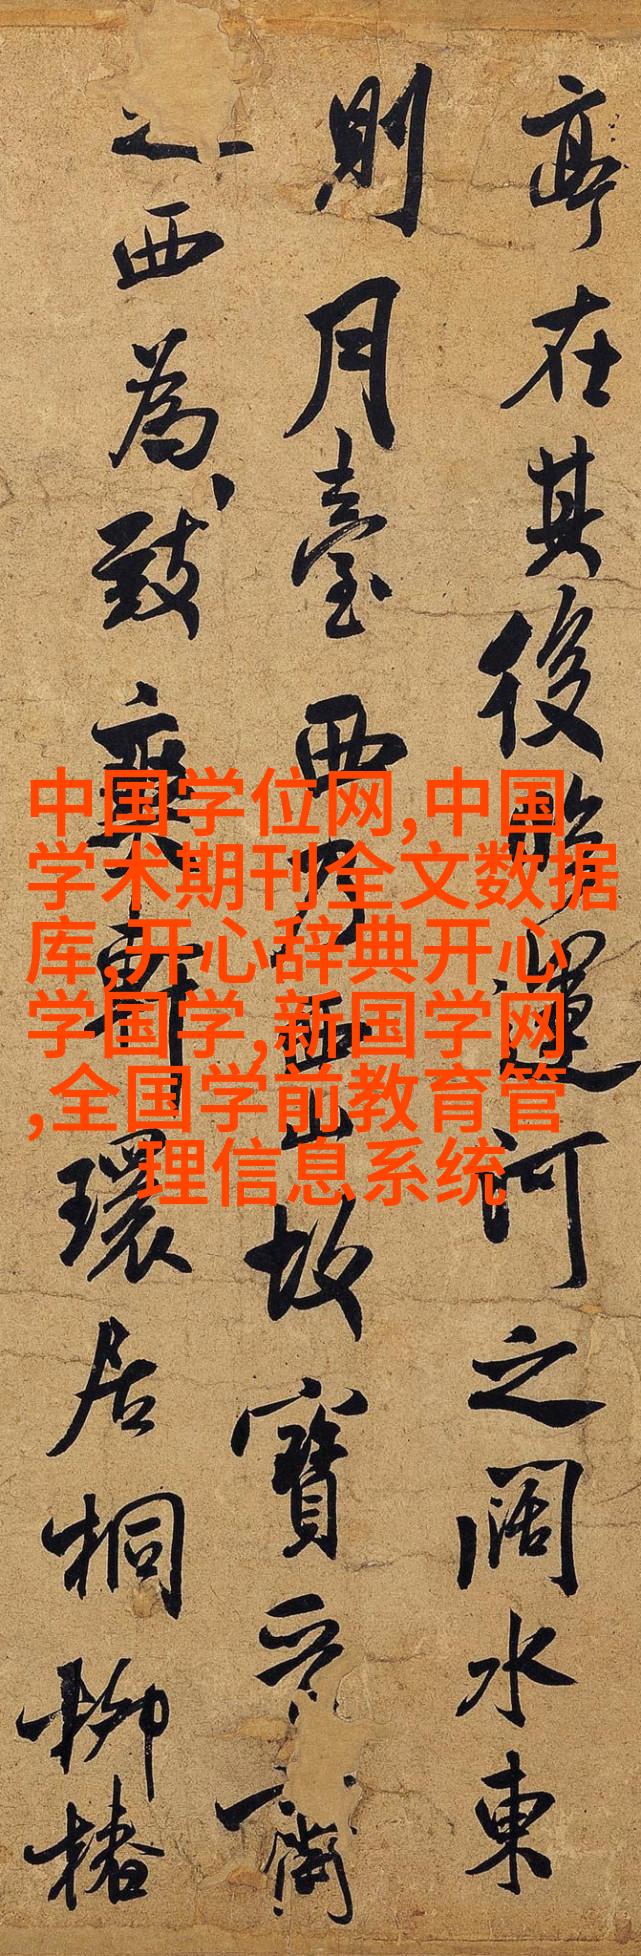 亭在其後臨運河之闊水東
則月臺西乃西山故寶晉齋
之西為致爽軒環居桐柳椿
中国学位网,中国
学术期刊全文数据
库,开心辞典开心
学国学,新国学网
,全国学前教育管
理信息系统